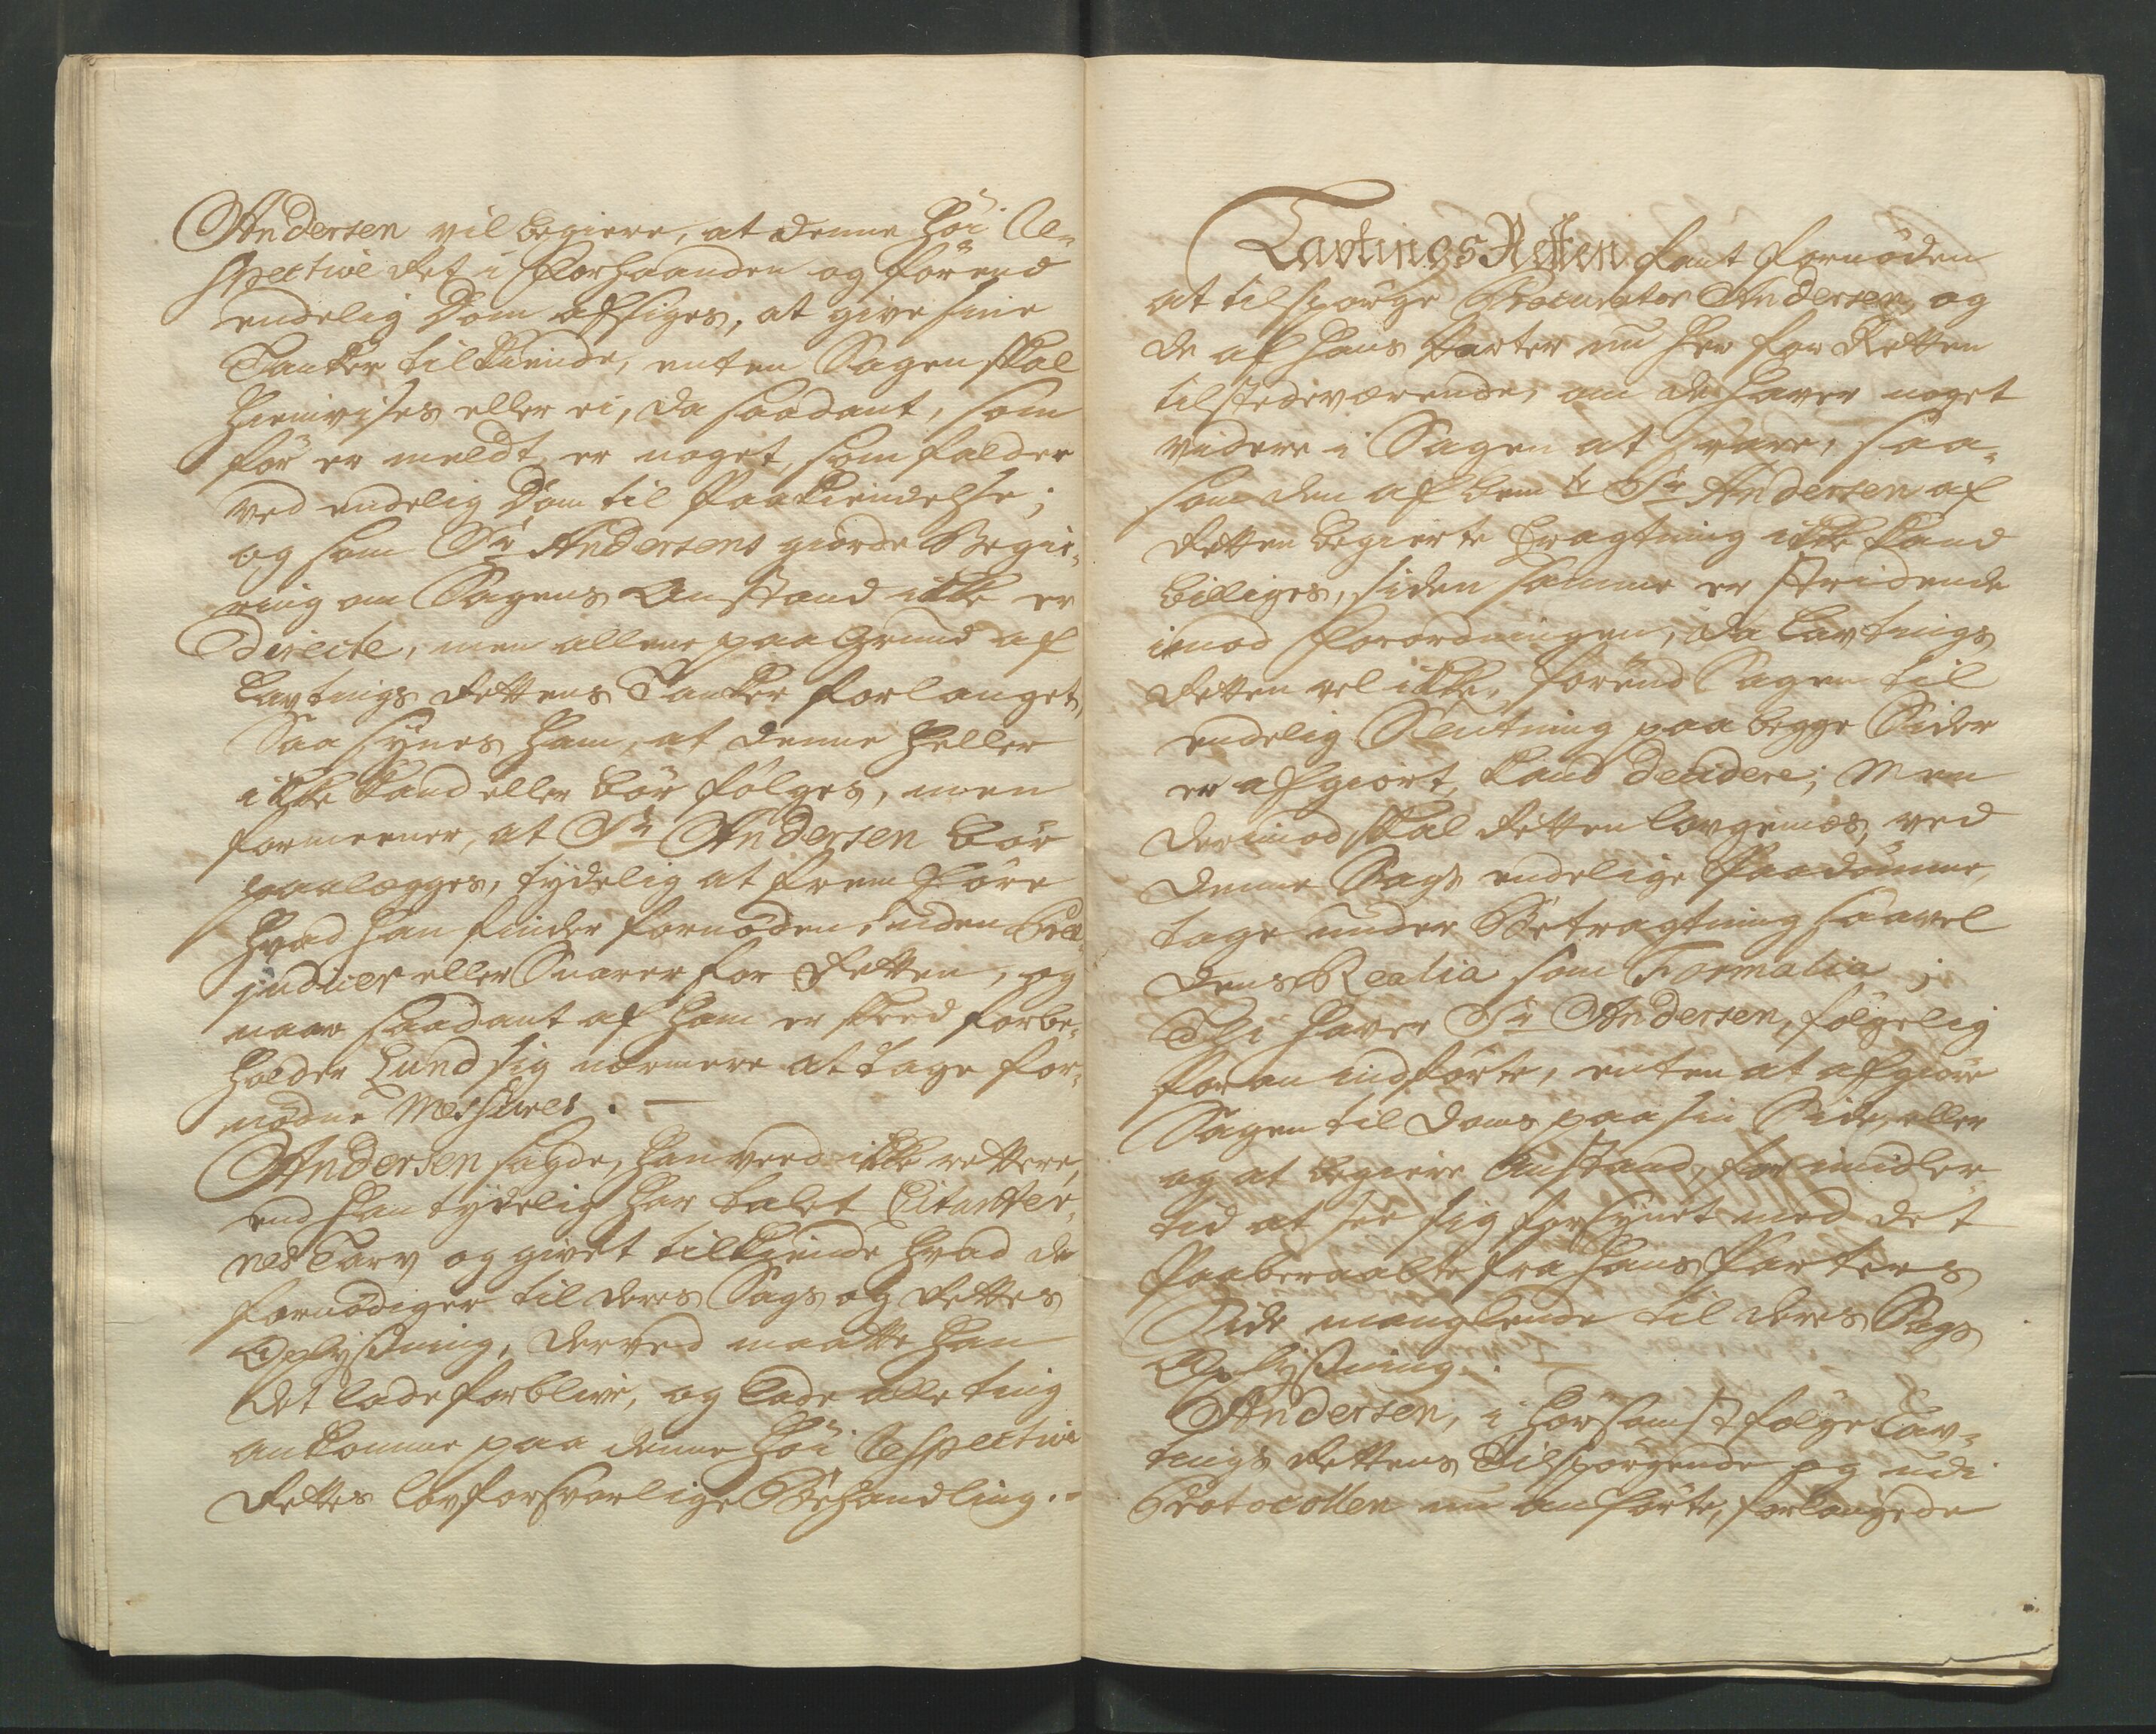 Andersen vil begiere, at denne Høi Re-
spective Ret i Forhaanden og førend
endelig Dom afsiges, at give sine
Tanker tilkiende, enten Sagen skal
hiemvises eller ei, da saadant, som
før er meldt, er noget, som falder
ved endelig Dom til Paakiendelse;
og som Sr Andersens giorde Begie-
ring om Sagens Anstand ikke er
directe, men allene paa Grund af
Lavtings Rettens Tanker forlanget,
Saa synes ham, at denne heller
ikke kand eller bør følges, men
formeener, at Sr Andersen bør
paalægges, tydelig at fremføre
hvad han finder fornøden, uden Præ-
judicer eller Snarer for Retten, og
naar saadant af ham er skeed forbe-
holder Lund sig nærmere at tage for-
nødne Messures. —
Andersen sagde, han veed ikke rettere,
end han tydelig har talet Citanter-
nes Tarv og givet tilkiende hvad de
fornødiger til deres Sags og Rettes
Oplysning, derved maatte han
det lade forblive, og lade alle ting
ankomme paa denne Høi Respective
Rettes lovforsvarlige Behandling. -
LavtingsRetten fant fornøden
at tilspørge Procurator Andersen, og
de af hans Parter nu her for Retten
tilstedeværende, om de haver noget
videre i Sagen at svare, saa-
som den af bemte Sr Andersen af
Retten begierte Eragtning ikke kand
billiges, siden samme er stridende
imod Forordningen, da Lavtings
Retten vel ikke, førend Sagen til
endelig Slutning paa begge Sider
er afgiort, kand decidere; Men
derimod skal Retten lovgemæs, ved
denne Sags endelige Paadømme,
tage under Betragtning saavel
dens Realia som Formalia;
Thi haver Sr Andersen, følgelig
foran indførte, enten at afgiøre
Sagen til Doms paa sin Side, eller
og at begiere Anstand, for imidler-
tid at see sig forsynet med det
Paaberaabte fra hans Parters
Side manglende til deres Sags
Oplysning. —
Andersen, i hørsomst følge Lav-
tings Rettens Tilspørgende og udi
Protocollen nu anførte, forlangede